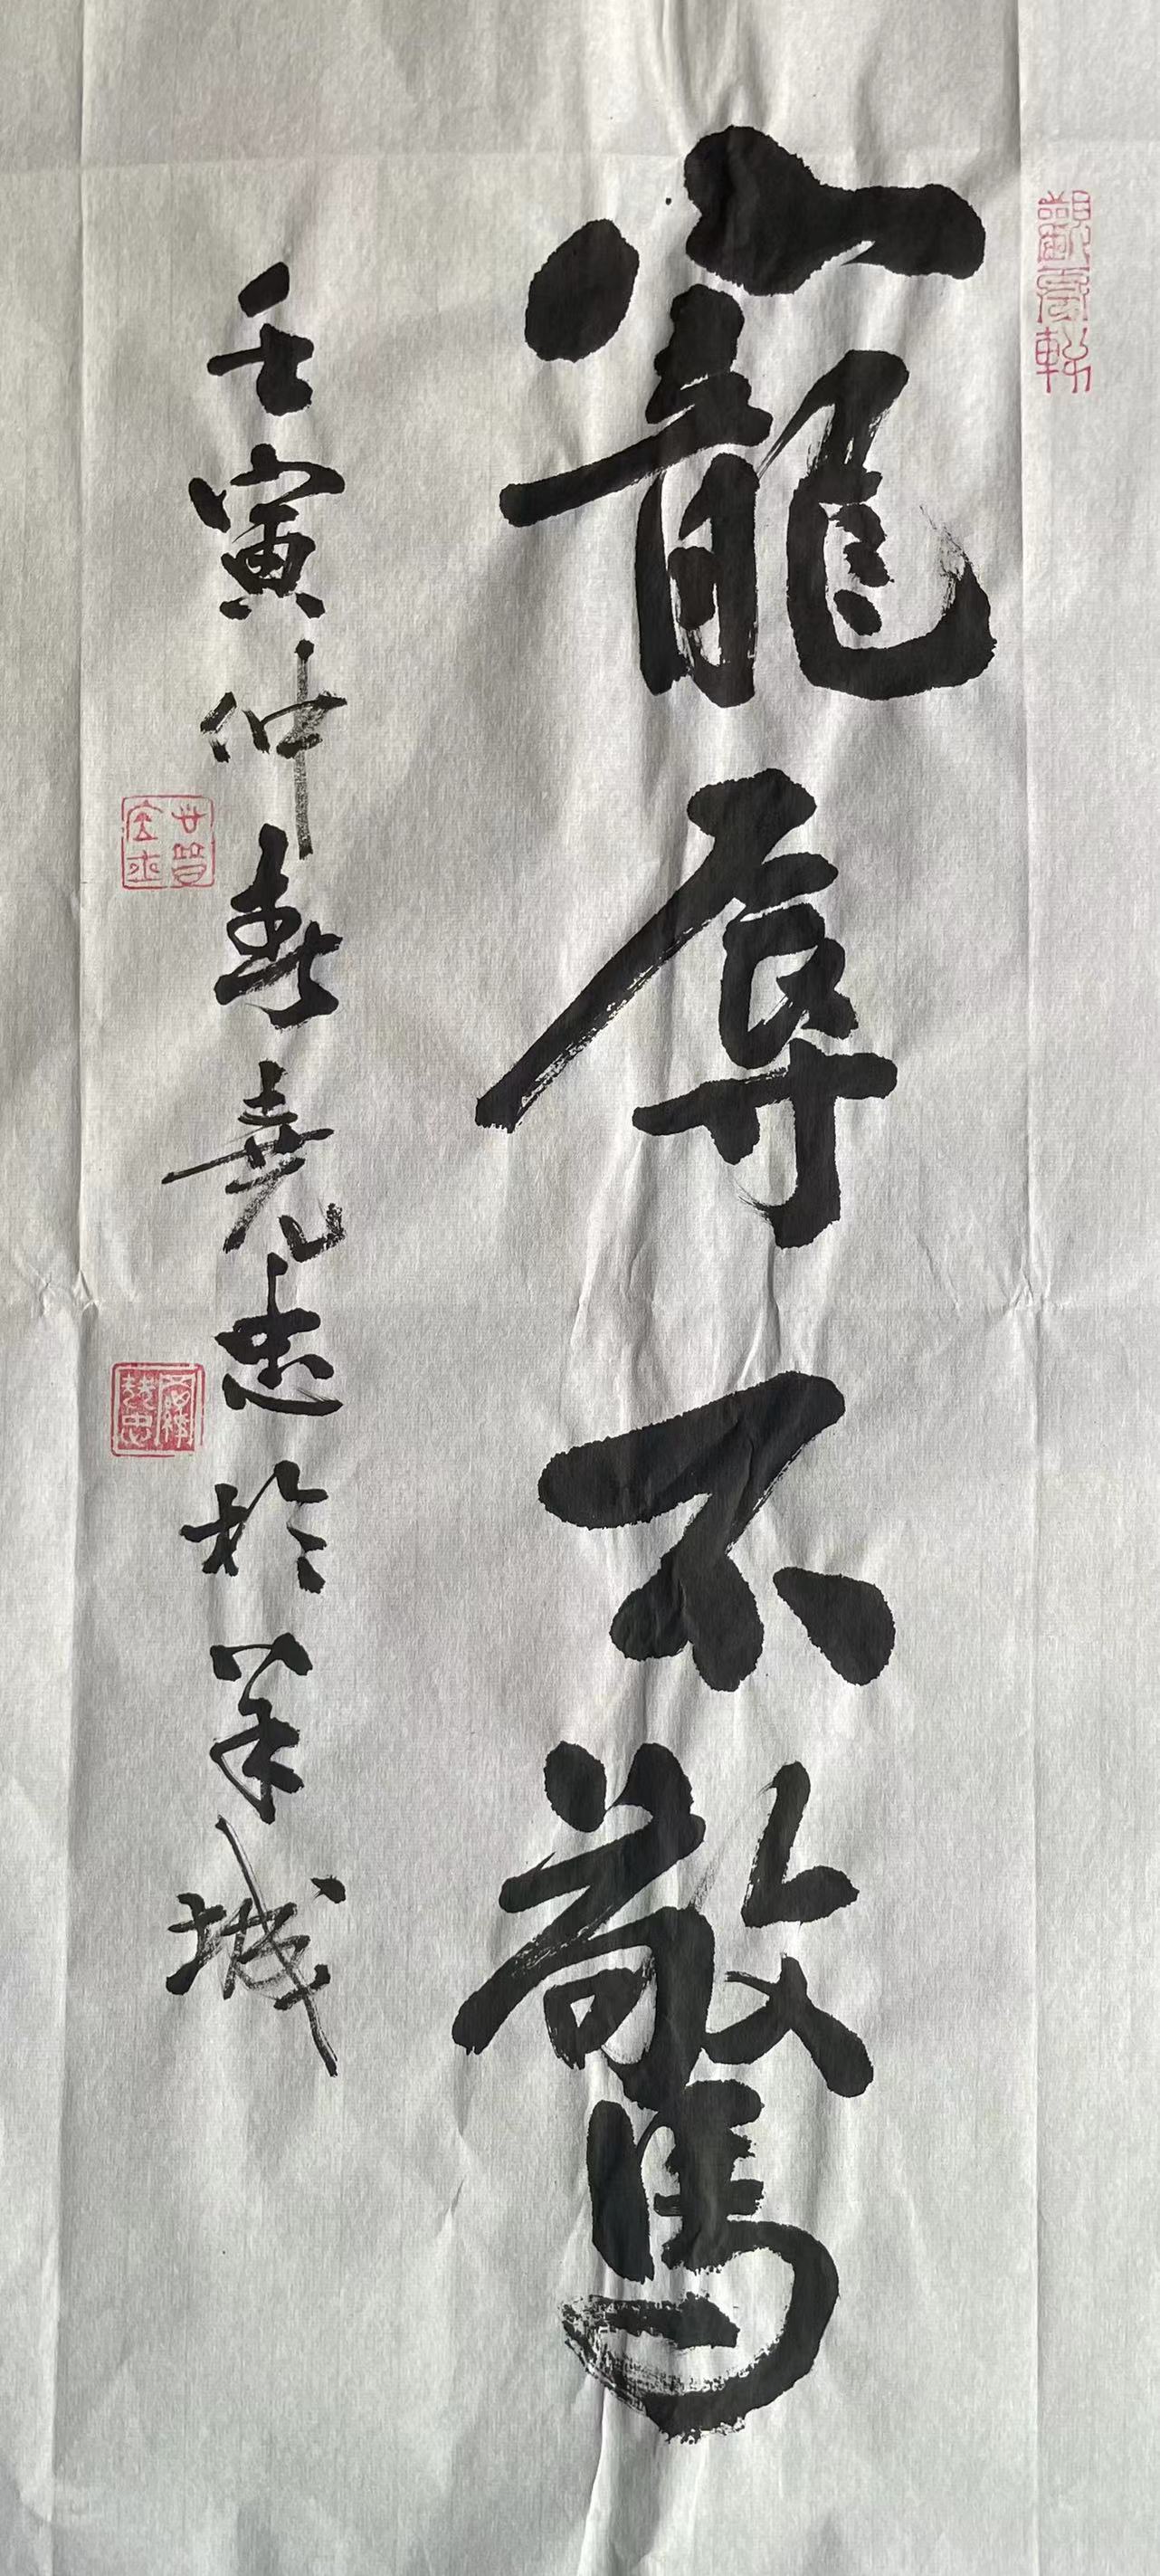 寵辱不驚
壬寅仲春堯忠於羊城